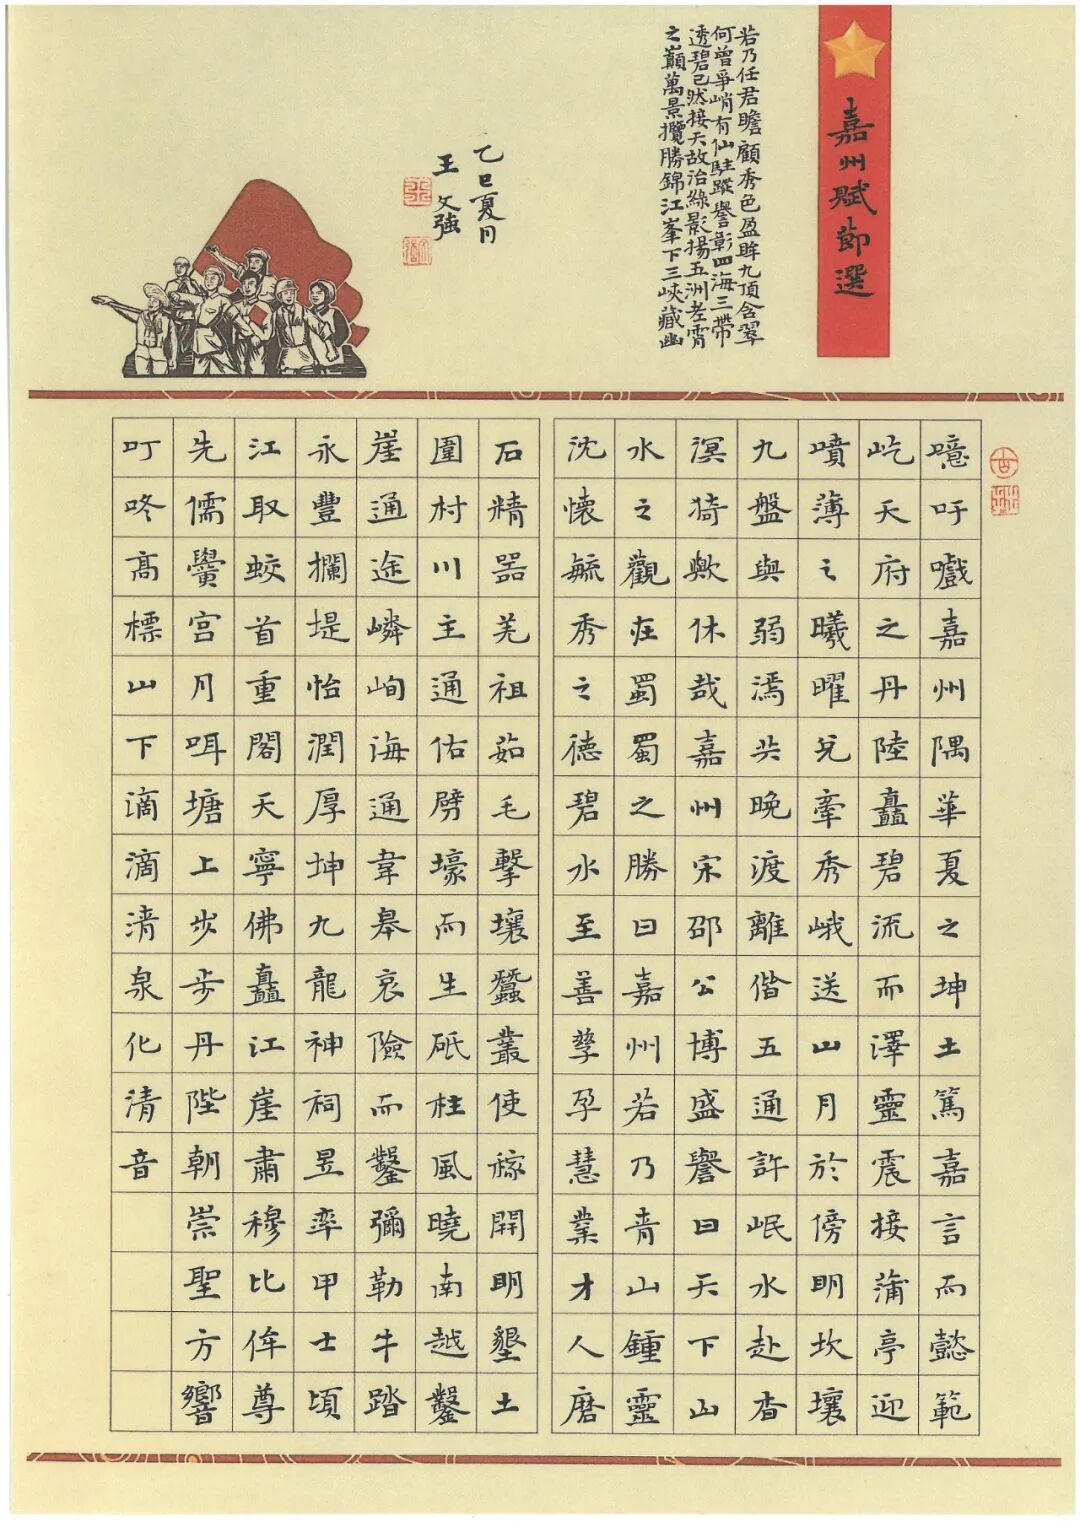 嘉州賦節選
噫吁嚱嘉州隅華夏之坤土篤嘉言而懿範
屹天府之丹陸矗碧流而澤靈震接蒲亭迎
噴薄之曦曜兌牽秀峨送山月於傍明坎壤
九盤與弱溤共晚渡離偕五通許岷水赴杳
溟猗歟休哉嘉州宋邵公博盛譽曰天下山
水之觀在蜀蜀之勝曰嘉州若乃青山鍾靈
沈懷毓秀之德碧水至善孳孕慧業才人磨
石精器羌祖茹毛擊壤蠶叢使稼開明墾土
圍村川主通佑劈壕而生砥柱風曉南越鑿
崖通途嶙峋海通韋皋哀險而鑿彌勒牛踏
永豐攔堤怡潤厚坤九龍神祠昱率甲士頃
江取蛟首重閣天寧佛矗江崖肅穆比侔尊
先儒黌宮月咡塘上步步丹陛朝崇聖方響
叮咚高標山下滴滴清泉化清音
若乃任君瞻顧秀色盈眸九頂含翠
何曾爭峭有仙駐蹤譽彰四海三帶
透碧已然接天故治綠影揚五洲老霄
之巔萬景攬勝錦江峯下三峽藏幽
乙巳夏月
王文強